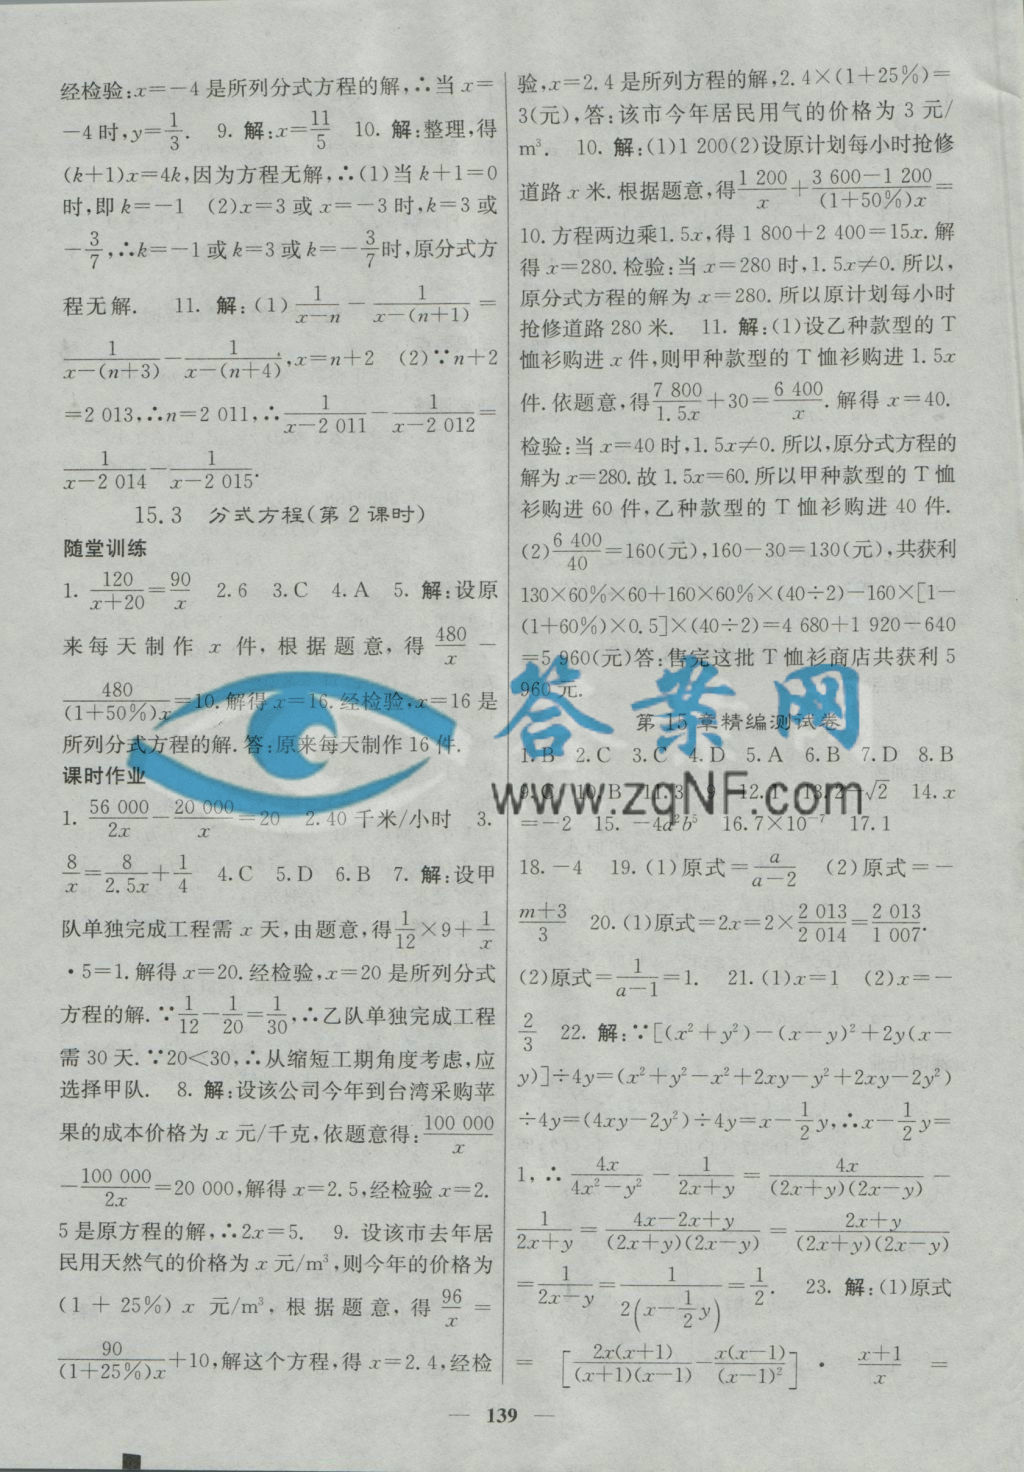 经检验:x=-4是所列分式方程的解,∴当x=
-4时,y=1/3. 9. 解:x=11/5 10. 解:整理,得
(k+1)x=4k,因为方程无解,∴(1)当k+1=0
时,即k=-1 (2)x=3或x=-3时,k=3或
-3/7,∴k=-1或k=3或k=-3/7时,原分式方
程无解. 11. 解:(1) 1/(x-n) - 1/(x-(n+1)) =
1/(x-(n+3)) - 1/(x-(n+4)),x=n+2 (2)∵n+2
=2 013,∴n=2 011,∴1/(x-2 011) - 1/(x-2 012) =
1/(x-2 014) - 1/(x-2 015).
15.3 分式方程(第2课时)
随堂训练
1. 120/(x+20)=90/x 2.6 3.C 4.A 5. 解:设原
来每天制作 x 件,根据题意,得 480/x -
480/((1+50%)x)=10.解得x=16.经检验,x=16是
所列分式方程的解.答:原来每天制作16件.
课时作业
1. 56 000/2x - 20 000/x=20 2.40千米/小时 3.
8/x=8/2.5x+1/4 4.C 5.D 6.B 7. 解:设甲
队单独完成工程需x天,由题意,得1/12×9+1/x
·5=1.解得x=20.经检验,x=20是所列分式
方程的解.∵1/12-1/20=1/30,∴乙队单独完成工程
需30天.∵20<30,∴从缩短工期角度考虑,应
选择甲队. 8. 解:设该公司今年到台湾采购苹
果的成本价格为x元/千克,依题意得:100 000/x
-100 000/2x=20 000,解得x=2.5,经检验x=2.
5是原方程的解,∴2x=5. 9. 设该市去年居
民用天然气的价格为x元/m³,则今年的价格为
(1+25%)x 元/m³,根据题意,得 96/x =
90/((1+25%)x)+10,解这个方程,得x=2.4,经检
验,x=2.4是所列方程的解,2.4×(1+25%)=
3(元),答:该市今年居民用气的价格为3元/
m³. 10. 解:(1)1 200(2)设原计划每小时抢修
道路x米.根据题意,得1 200/x+(3 600-1 200)/((1+50%)x)=
10.方程两边乘1.5x,得1 800+2 400=15x.解
得x=280.检验:当x=280时,1.5x≠0.所以,
原分式方程的解为x=280.所以原计划每小时
抢修道路280米. 11. 解:(1)设乙种款型的T
恤衫购进x件,则甲种款型的T恤衫购进1.5x
件.依题意,得7 800/1.5x+30=6 400/x.解得x=40.
检验:当x=40时,1.5x≠0.所以,原分式方程的
解为x=280.故1.5x=60.所以甲种款型的T恤
衫购进60件,乙种款型的T恤衫购进40件.
(2)6 400/40=160(元),160-30=130(元),共获利
130×60%×60+160×60%×(40÷2)-160×[1-
(1+60%)×0.5]×(40÷2)=4 680+1 920-640
=5 960(元)答:售完这批T恤衫商店共获利5
960元.
第15章精编测试卷
1.B 2.C 3.C 4.D 5.A 6.B 7.D 8.B
9.C 10.B 11.3 9 12.1 13.2-√2 14.x
=-2 15. -4a²b⁵ 16.7×10⁻⁷ 17.1
18.-4 19.(1)原式=a/(a-2) (2)原式=-
(m+3)/3 20.(1)原式=2x=2×2 013/2 014=2 013/1 007.
(2)原式=1/(a-1)=1. 21.(1)x=1 (2)x=-
2/3 22. 解:∵[(x²+y²)-(x-y)²+2y(x-
y)]÷4y=(x²+y²-x²+2xy-y²+2xy-2y²)
÷4y=(4xy-2y²)÷4y=x-1/2y,∴x-1/2y=
1,∴4x/(4x²-y²) - 1/(2x+y) = 4x/((2x+y)(2x-y)) -
1/(2x+y) = (4x-2x+y)/((2x+y)(2x-y)) = (2x+y)/((2x+y)(2x-y))
=1/(2x-y)=1/(2(x-1/2y))=1/2. 23. 解:(1)原式
= [2x(x+1)/((x+1)(x-1)) - x(x-1)/(x-1)²] · (x+1)/x =
139
答案网
www.zqNF.com